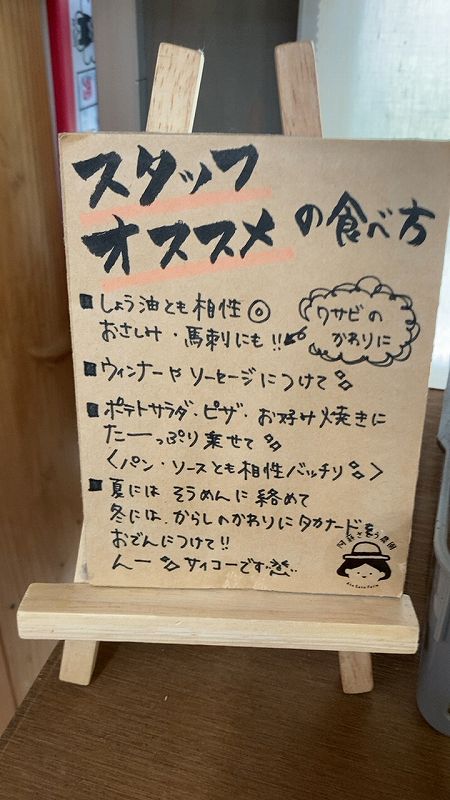 スタッフ
オススメ の食べ方
■しょう油とも相性◎
おさしみ・馬刺にも!!
ワサビの
かわりに
■ウィンナーや ソーセージにつけて
■ポテトサラダ・ピザ・お好み焼きに
たーっぷり乗せて
〈パン・ソースとも相性バッチリ〉
■夏には そうめんに絡めて
冬には、からしのかわりにタカナードを
おでんにつけて!!
んー サイコーです
阿蘇さとう農園
Aso Sato Farm